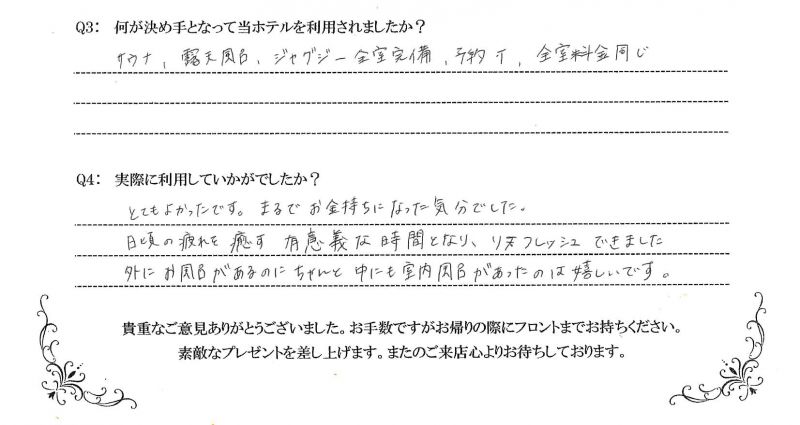 Q3: 何が決め手となって当ホテルを利用されましたか？
サウナ、露天風呂、ジャグジー全室完備、予約不、全室料金同じ
Q4: 実際に利用していかがでしたか？
とてもよかったです。まるでお金持ちになった気分でした。
日頃の疲れを癒す有意義な時間となり、リフレッシュできました
外にお風呂があるのにちゃんと中にも室内風呂があったのは嬉しいです。
貴重なご意見ありがとうございました。お手数ですがお帰りの際にフロントまでお持ちください。
素敵なプレゼントを差し上げます。またのご来店心よりお待ちしております。